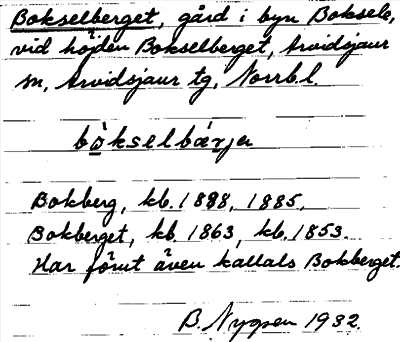 Bokselberget, gård i byn Boksele,
vid höjden Bokselberget, Arvidsjaur
sn, Arvidsjaur tg, Norrb.l.
bò̲kselbær̲ja
Bokberg, kb. 1888, 1885,
Bokberget, kb. 1863, kb. 1853.
Har förut även kallats Bokberget.
B. Nygren 1932.